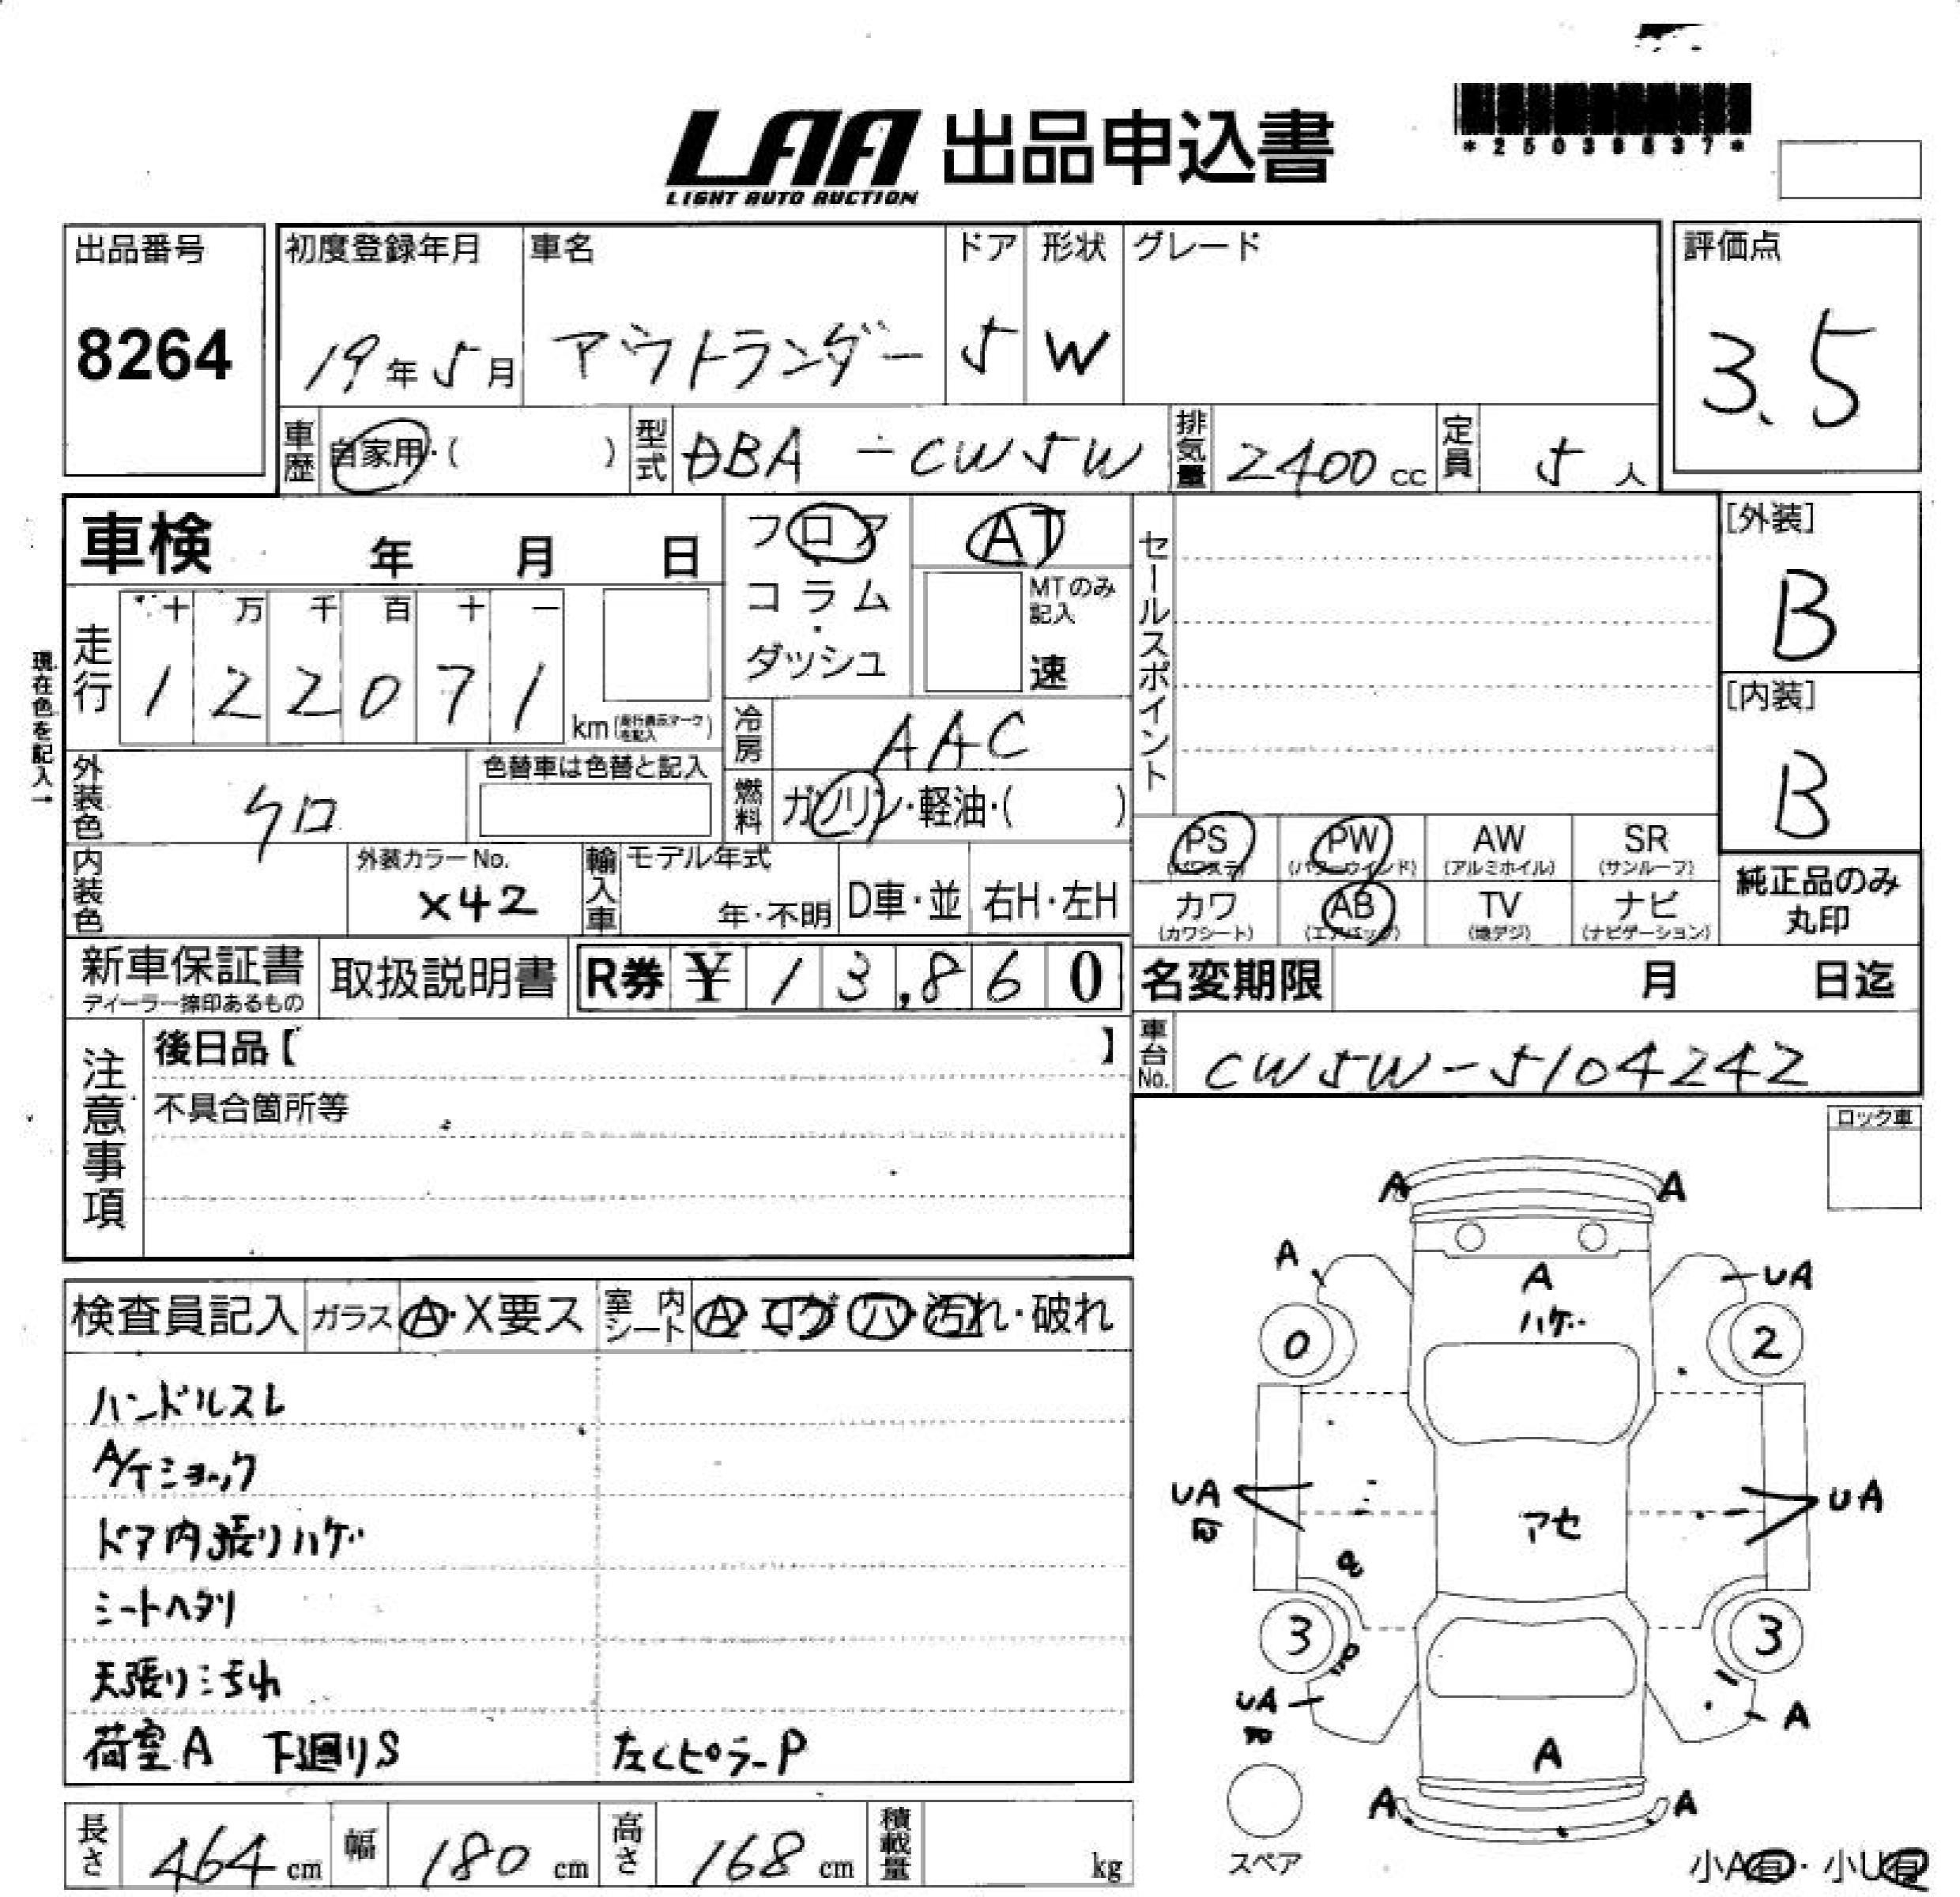 LAA 出品申込書
LIGHT AUTO AUCTION
出品番号
8264
初度登録年月
19年5月
車名
アウトランダー
ドア
5
形状
W
グレード
評価点
3.5
車歴 自家用・( )
型式 DBA-CW5W
排気量 2400cc
定員 5人
車検 年 月 日
フロア
コラム
ダッシュ
AT
MTのみ
記入
速
セールスポイント
[外装]
B
[内装]
B
現在色を記入→
走行
十 万 千 百 十 一
1 2 2 0 7 1
km(走行表示マークを記入)
冷房 AAC
外装色 クロ
色替車は色替と記入
燃料 ガソリン・軽油・( )
内装色
外装カラーNo.
X42
輸入車
モデル年式
年・不明
D車・並
右H・左H
PS
(パワステ)
PW
(パワーウインド)
AW
(アルミホイル)
SR
(サンルーフ)
カワ
(カワシート)
AB
(エアバッグ)
TV
(地デジ)
ナビ
(ナビゲーション)
純正品のみ
丸印
新車保証書
ディーラー捺印あるもの
取扱説明書
R券 ¥ 13,860
名変期限 月 日迄
車台No. CW5W-5104242
注意事項
後日品【 】
不具合箇所等
ロック車
検査員記入
ガラス A・X要ス
室内シート A・コゲ・穴・汚れ・破れ
ハンドルスレ
A/Tショック
ドア内張りハゲ
シートヘタリ
天張り汚れ
荷室A 下廻りS
左CピラーP
A A
A A UA
ハゲ
0 2
UA アセ UA
3 3
UA A
A
A A
スペア
小A有・小U有
長さ 464cm
幅 180cm
高さ 168cm
積載量 kg